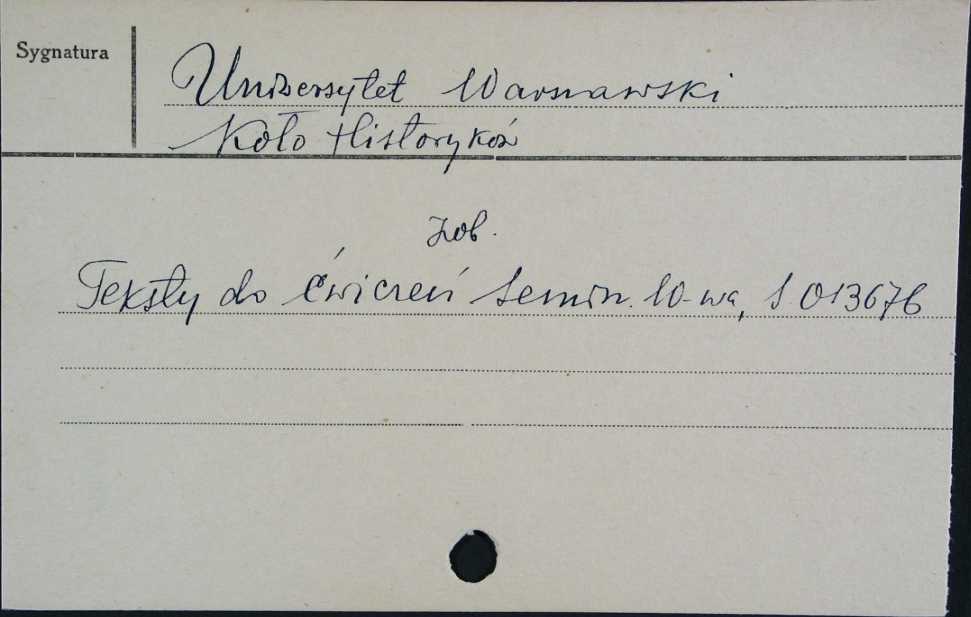 Sygnatura
Uniwersytet Warszawski
Koło Historyków
zob.
Teksty do ćwiczeń semin. W-wa, S 013676